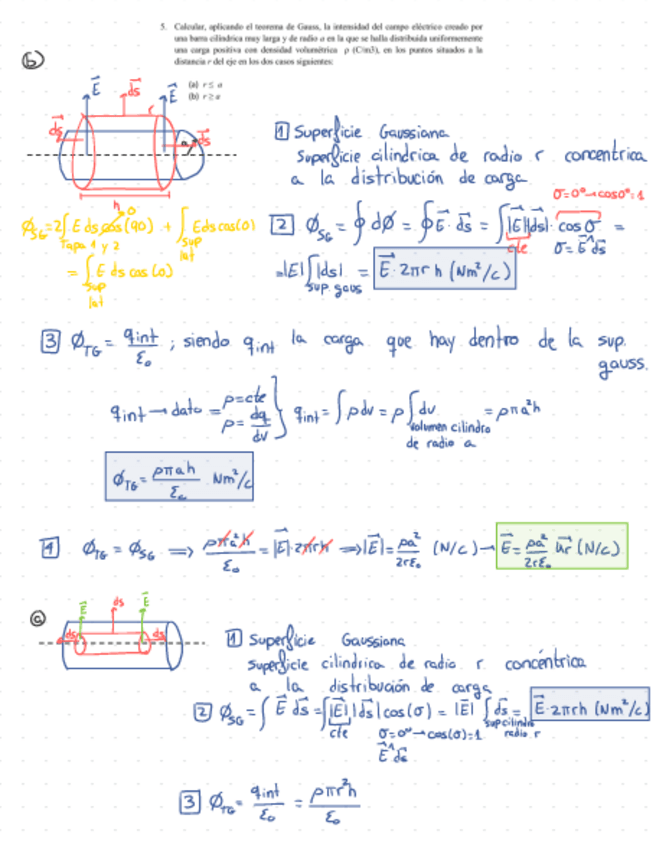 5. Calcular, aplicando el teorema de Gauss, la intensidad del campo eléctrico creado por
una barra cilíndrica muy larga y de radio a en la que se halla distribuida uniformemente
una carga positiva con densidad volumétrica ρ (C/m3), en los puntos situados a la
distancia r del eje en los dos casos siguientes:
(a) r ≤ a
(b) r ≥ a
(b)
E⃗ ds⃗ r E⃗
ds⃗ a ds⃗
h
1 Superficie Gaussiana
Superficie cilindrica de radio r concentrica
a la distribución de carga
σ=0°→cos0°=1
Ø_SG = 2∫E ds cos(90) + ∫ E ds cos(0)
0
Tapa 1 y 2 sup lat
= ∫ E ds cos(0)
sup lat
2 Ø_SG = ∮ dØ = ∮ E⃗·ds⃗ = ∫|E⃗||ds⃗|·cos σ =
cte σ=E⃗^ds⃗
=|E|∫|ds| = E⃗·2πr h (Nm²/c)
sup. gaus
3 Ø_TG = qint/ε₀ ; siendo qint la carga que hay dentro de la sup.
gauss.
qint → dato = ρ=cte ρ=dq/dv } qint = ∫ρdv = ρ∫dv = ρπa²h
volumen cilindro
de radio a
Ø_TG = ρπah/ε₀ Nm²/c
4 Ø_TG = Ø_SG ⟹ ρπa²h/ε₀ = |E⃗|·2πrh ⟹ |E⃗| = ρa²/2rε₀ (N/c) → E⃗ = ρa²/2rε₀ ur⃗ (N/c)
(a)
E⃗ ds E⃗
ds ds
1 Superficie Gaussiana
Superficie cilindrica de radio r concéntrica
a la distribución de carga
2 Ø_SG = ∫ E⃗ ds⃗ = ∫|E⃗||ds⃗|cos(σ) = |E⃗| ∫ ds⃗ = E⃗·2πrh (Nm²/c)
cte σ=0°→cos(σ)=1 sup cilindro radio r
E⃗^ds⃗
3 Ø_TG = qint/ε₀ = ρπr²h/ε₀